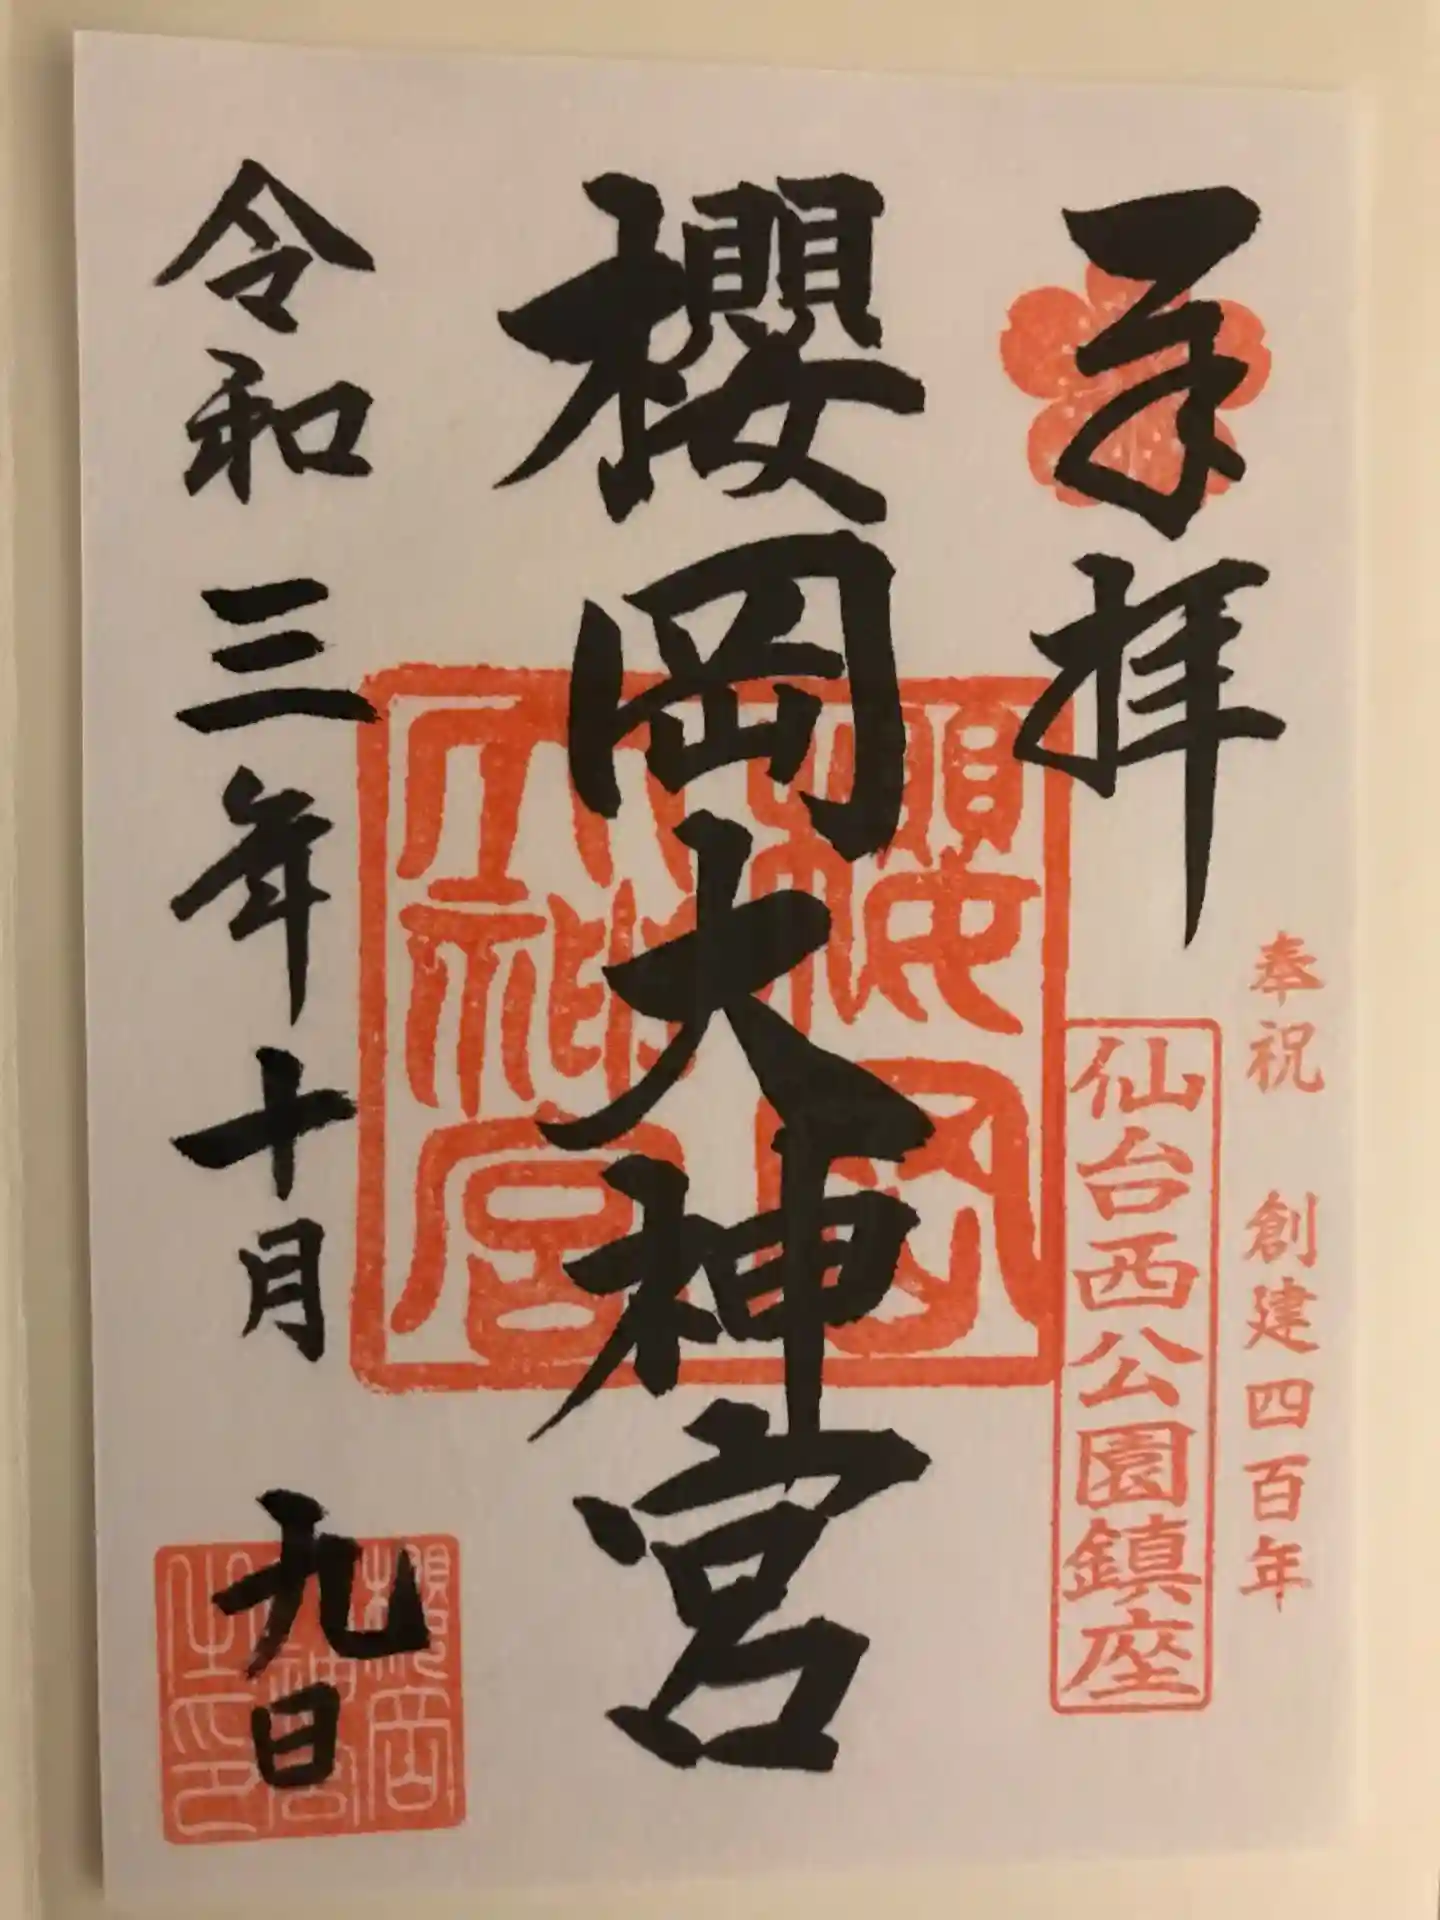 奉拝
奉祝 創建四百年
仙台西公園鎮座
櫻岡大神宮
櫻岡
大神宮
令和三年十月九日
櫻岡
大神宮
之印